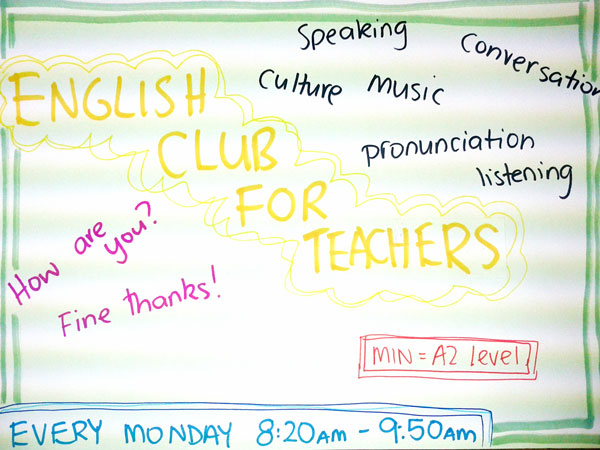 Speaking
Conversation
Culture Music
pronunciation
listening
ENGLISH
CLUB
FOR
TEACHERS
How are you?
Fine thanks!
MIN = A2 level
EVERY MONDAY 8:20AM - 9:50AM